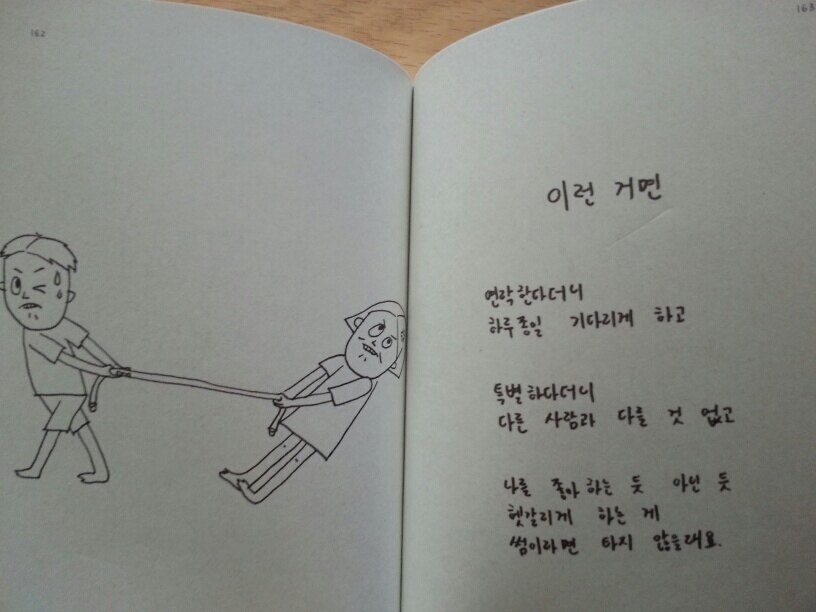 162
163
이런 거면
연락한다더니
하루종일 기다리게 하고
특별하다더니
다른 사람과 다를 것 없고
나를 좋아하는 듯 아닌 듯
헷갈리게 하는 게
썸이라면 타지 않을래요.